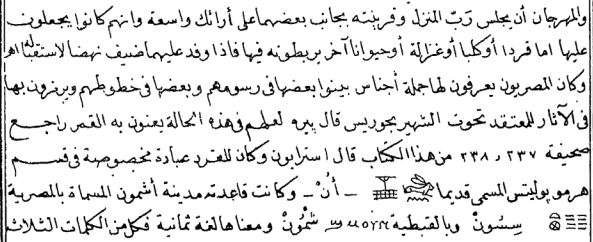 والمهرجان أن يجلس رب المنزل وقرينته بجانب بعضهما على أرائك واسعة وانهم كانوا يجعلون
عليها اما قردا أو كلبا أو غزالة أو حيوانا آخر يربطونه فيها فاذا وفد عليهما ضيف نهضا لاستقباله اهـ
وكان المصريون يعرفون لها جملة أجناس بينوا بعضها في رسومهم وبعضها في خطوطهم ويرمزون بها
في الآثار للمعتقد تحوت الشهير بجوريس قال بيره لعلهم في هذه الحالة يعنون به القمر راجع
صحيفة ٢٣٧ و ٢٣٨ من هذا الكتاب قال استرابون وكان للقرد عبادة مخصوصة في قسم
هرموبوليتس المسمى قديما — أُنْ — وكانت قاعدته مدينة أشمون المسماة بالمصرية
سِسُونْ وبالقبطية ϣⲙⲟⲩⲛ شْمُونْ ومعناها لغة ثمانية فكل من الكلمات الثلاث